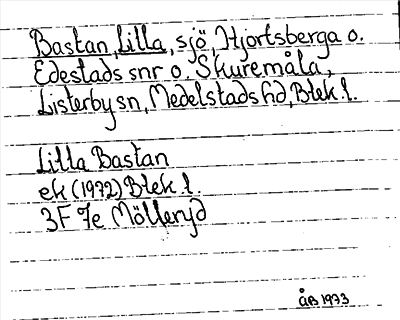 Bastan, Lilla, sjö, Hjortsberga o.
Edestads snr o. Skuremåla,
Listerby sn, Medelstads hd, Blek. l.
Lilla Bastan
ek (1972) Blek. l.
3F 7e Möllenyd
ÅB 1973